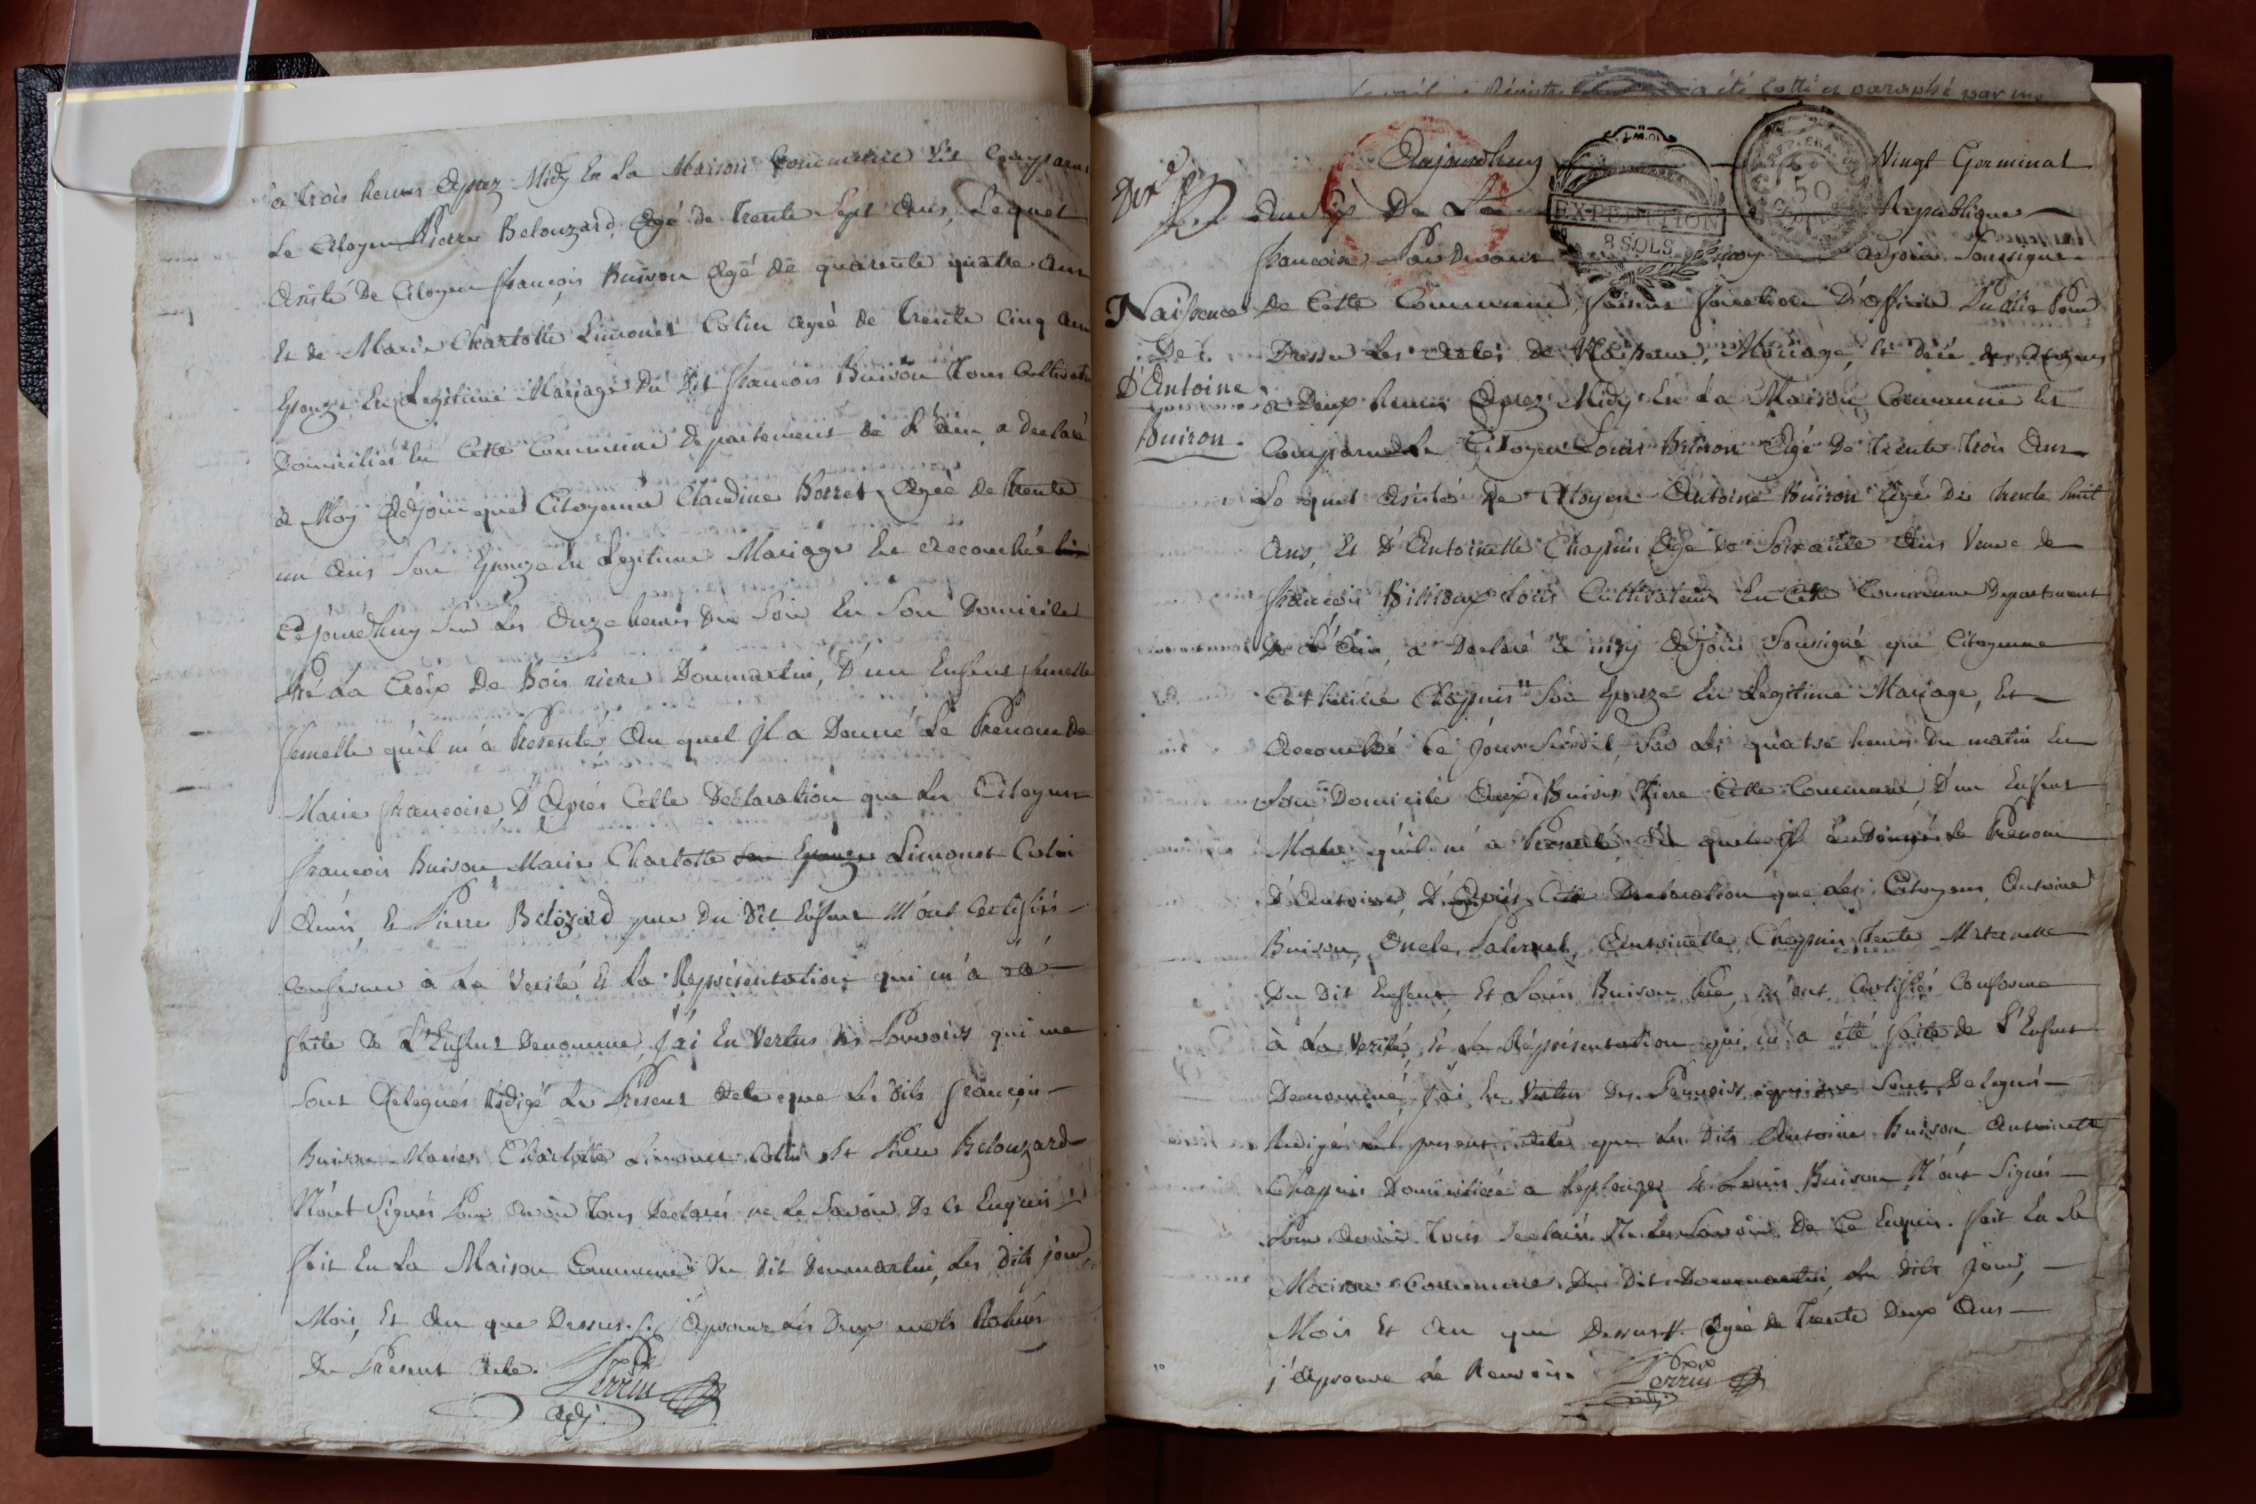 à trois heures Aprez Midy En La Maison Commune Est Comparus
Le Citoyen Pierre Belouzard, Agé de Trente Sept Ans, Lequel
Assisté De Citoyen François Buison Agé de quarente quattre Ans
Et de Marie Charlotte Limonet Colin Agée de Trente Cinq Ans
Epouze En Legitime Mariage Du Dit François Buison Tous Cultivateurs
Domiciliés En Cette Commune Departement de L'Ain, a Declaré
à Moy Adjoin que Citoyenne Claudine Borret Agée de Trente
un Ans Son Epouze En Legitime Mariage Est Accouchée
Cejourdhuy Sur Les Onze heures Du Soir En Son Domicile
Pré La Croix De Bois riere Donmartin, D'un Enfant femelle
femelle qu'il m'a Presenté, Au quel Il a Donné Le Prenom De
Marie françoise, D'Aprés Cette Declaration que Les Citoyens
François Buison, Marie Charlotte Son Epouze Limonet Colin
Amis, Et Pierre Belozard pere Du Dit Enfant M'ont Certifiés
Conforme à La Verité Et La Représentation qui m'a
faite De L'Enfant Denommé, J'ai En Vertus Des Pouvoirs qui me
Sont Delegués Rédigé Le Present Acte que Les Dits François
Buison Marie Charlotte Limonet Colin Et Pierre Belouzard
N'ont Signés Pour Avoir Tous Declarés ne Le Savoir De Ce Enquis
fait En La Maison Commune Du Dit Donmartin, Les Dits jour,
Mois, Et An que Dessus. J'Aprouve Les Deux mots Rahiés
Du Present Acte.
Perrin
Adj.
Aujourdhuy Vingt Germinal
An Six De La Republique
François Adjoin Soussigné
Naissence
De
D'Antoine
Buison.
De Cette Commune faisant fonction D'Officier Public Pour
Dresser Les Actes de Naissence, Mariage, Et Décé des Citoyens
à Deux heures Aprez Midy En La Maison Commune Est
Comparus Le Citoyen Louis Buison Agé De trente trois Ans
Le quel Asisté De Citoyen Antoine Buison Agé De trente huit
Ans, Et D'Antoinette Chapuis Agée de Soixante Ans Veuve de
François Tous Cultivateurs En Cette Commune Departement
De L'Ain, a Declaré à moy Adjoin Soussigné que Citoyenne
Catherine Chapuis Son Epouze En Legitime Mariage, Est
Accouchée Ce jour Susdit Sur Les quatre heures Du matin En
Son Domicile Aux Buisons Riere Cette Commune, D'un Enfant
Male, qu'il m'a Presenté, Et quel il a Donné Le Prenom
D'Antoine, D'Aprés Cette Declaration que Les Citoyens Antoine
Buison, Oncle Paternel, Antoinette Chapuis Tente Maternelle
Du Dit Enfant, Et Louis Buison Pere, m'ont Certifiés Conforme
à La Verité, Et La Réprésentation qui m'a été faite de L'Enfant
Denommé, J'ai En Vertus Des Pouvoirs qui me Sont Delegués
Redigé Le present Acte que Les Dits Antoine Buison, Antoinette
Chapuis Domiciliée a Replonges Et Louis Buison N'ont Signés
Pour Avoir Tous Declarés Ne Le Savoir De Ce Enquis. fait En La
Maison Commune Du Dit Donmartin, Les Dits Jour,
Mois Et An que Dessus. Agée de Trente Deux Ans
j'Aprouve Le Renvois.
Perrin
Adj
EXPEDITION
8 SOLS
50